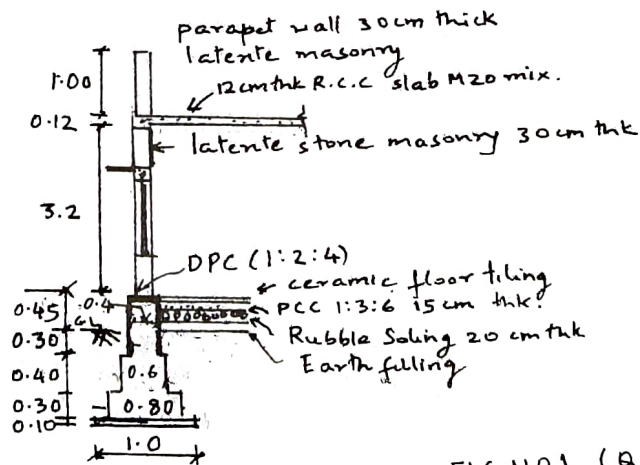 parapet wall 30cm thick
latente masonry
12cm thk R.C.C slab M20 mix.
1.00
0.12
latente stone masonry 30cm thk
3.2
DPC (1:2:4)
ceramic floor tiling
0.45
0.4
PCC 1:3:6 15cm thk.
GL
Rubble Soling 20cm thk
0.30
Earth filling
0.40
0.6
0.30
0.80
0.10
1.0